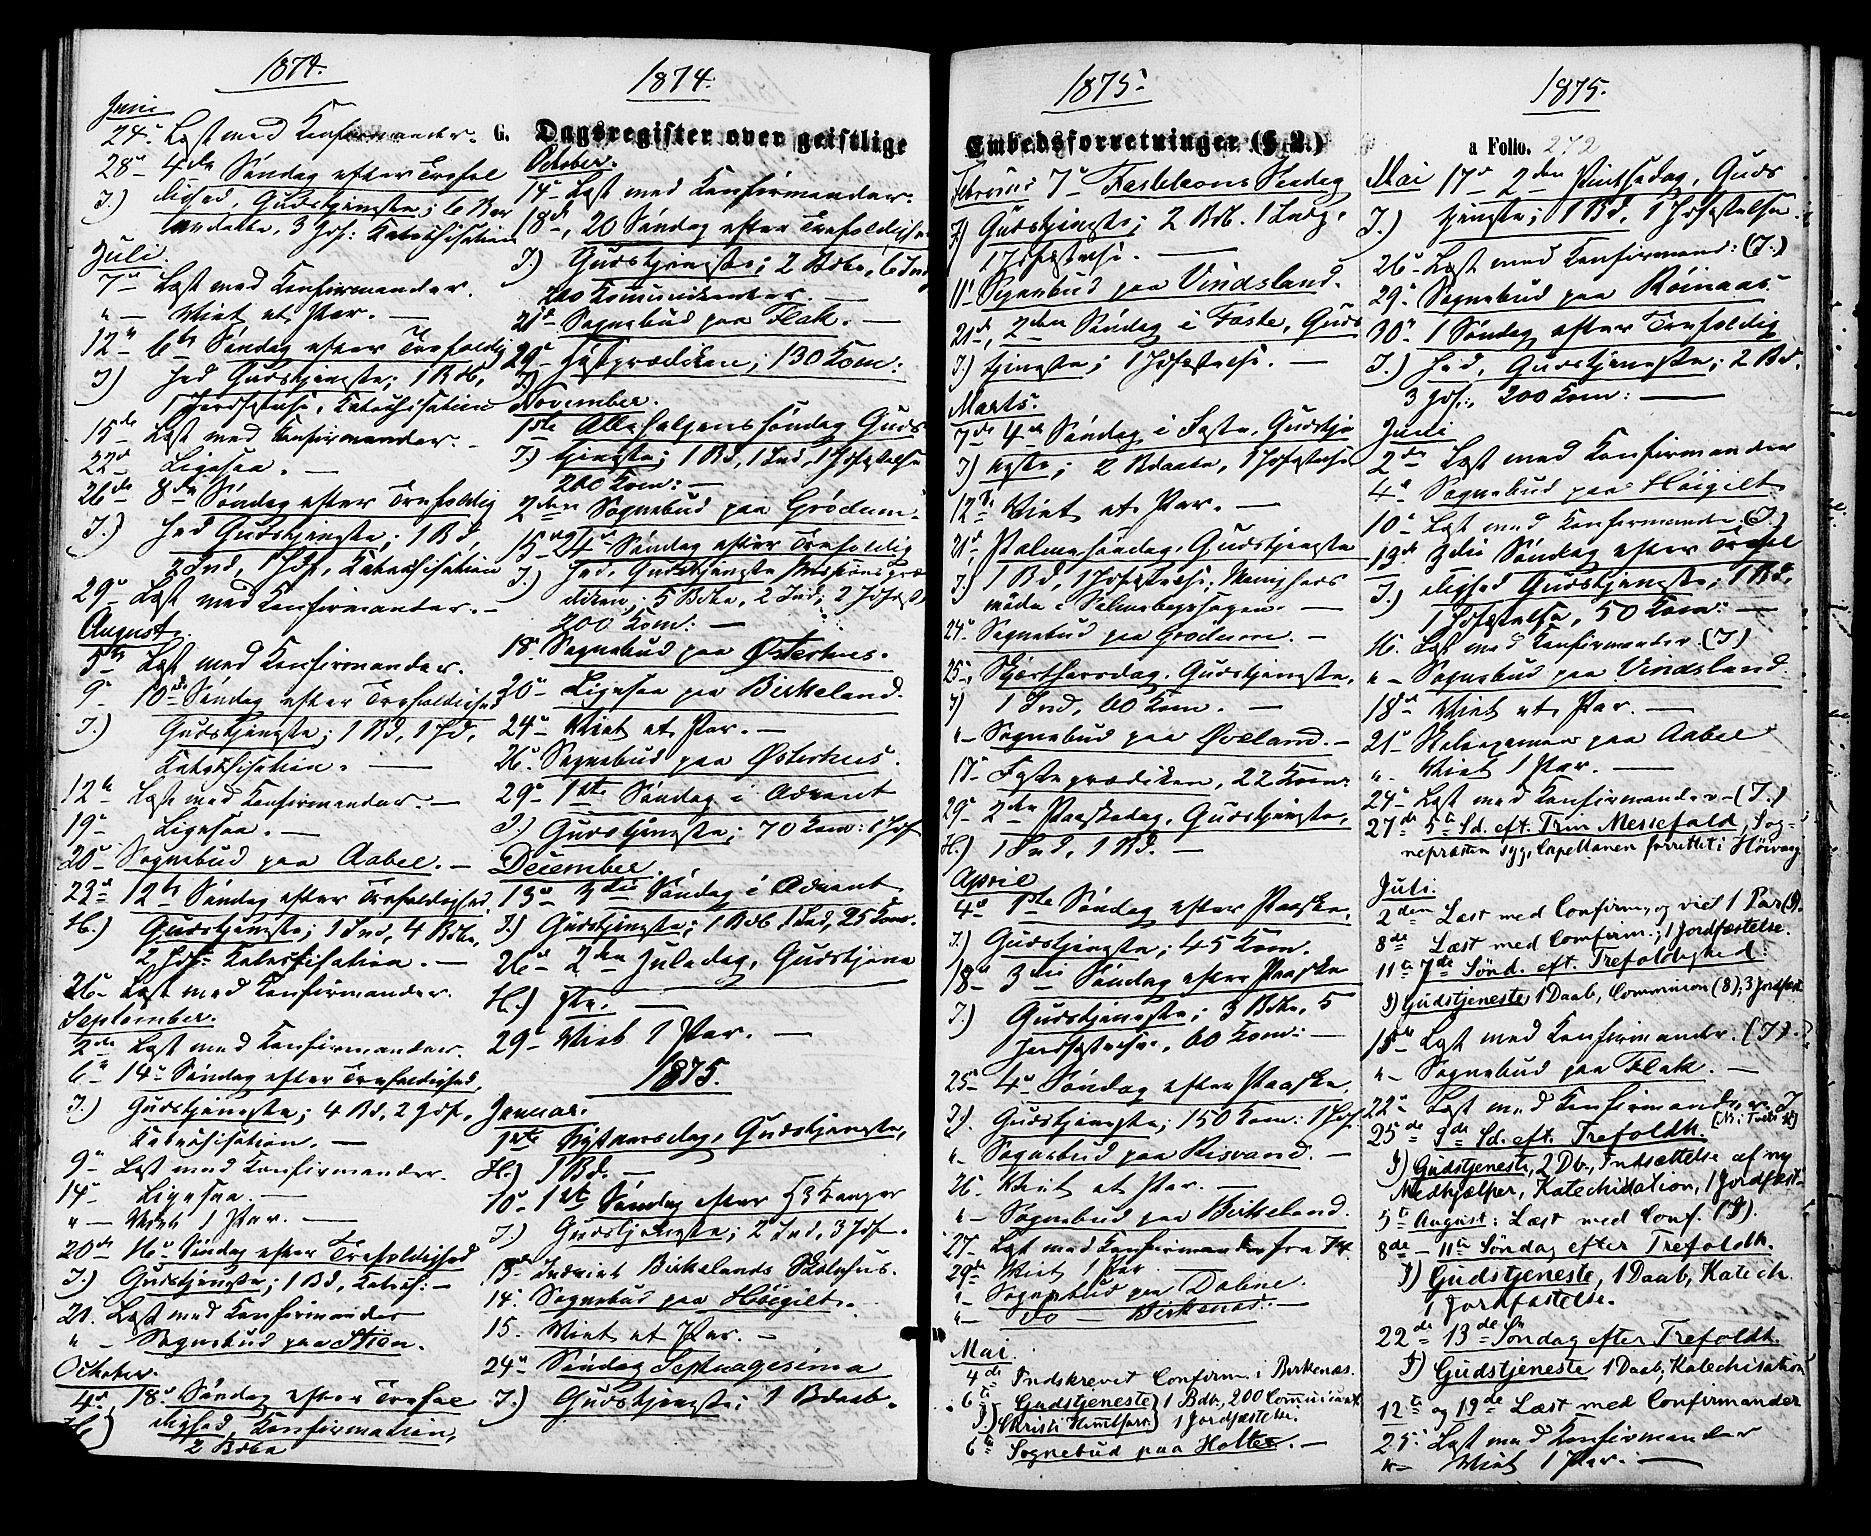 1874.
Juni
24de Læst med Konfirmander.
28de 4de Søndag efter Trefol
I.) dighed, Gudstjeneste; 6 Bør
3 Jof: Katechisation
Juli.
7de Læst med Konfirmander.
" — Viet et Par. —
12te 6te Søndag efter Trefoldig
I) hed Gudstjeneste; 1 Bdb,
1 Jordfæstelse, Katechisation
15de Læst med Konfirmander. -
22de Ligesaa. —
26de 8de Søndag efter Trefoldig
I.) hed Gudstjeneste; 1 Bd,
2 Ind, 1 Jof, Katechisation
29de Læst med Konfirmander. -
August.
5te Læst med Konfirmander.
9de 10de Søndag efter Trefoldighed
I.) Gudstjeneste; 1 Bd, 1 Jof,
Katechisation. —
12te Læst med Konfirmander. —
19de Ligesaa. —
20de Sognebud paa Aabel. —
23de 12te Søndag efter Trefoldighed,
H.) Gudstjeneste; 1 Ind, 4 Bdbe,
2 Jof: Katechisation. —
26de Læst med Konfirmander.
September.
2de Læst med Konfirmander.
6te 14de Søndag efter Trefoldighed,
I.) Gudstjeneste; 4 Bd, 2 Jof,
Katechisation. —
9de Læst med Konfirmander.
14de Ligesaa. —
" — Viet 1 Par. —
20de 16de Søndag efter Trefoldighed
I.) Gudstjeneste; 1 Bd, Katech: —
21. Læst med Konfirmander
" - Sognebud paa Stien.
October.
4de 18de Søndag efter Trefol
H.) dighed, Konfirmation,
2 Bdbe
1874.
G. Dagsregister over geistlige
October.
14de Læst med Konfirmander.
18de, 20 Søndag efter Trefoldighed
I.) Gudstjeneste; 2 Bdbe, 6 Ind
210 Komunikanter. —
21de Sognebud paa Flak. —
29de Høstprædiken; 130 Kom:
I.)
November.
1ste Allehelgenssøndag Guds
I.) tjeneste; 1 Bd, 1 Ind, 1 Jofæstelse
200 Kom: —
2den Sognebud paa Grødum.
15de 24de Søndag efter Trefoldig
I.) hed, Gudstjeneste Missionspræ
diken; 5 Bdbe, 2 Ind; 2 Jofæst
200 Kom: —
18. Sognebud paa Østerhus.
20de Ligesaa paa Birkeland.
24de Viet et Par. —
26. Sognebud paa Østerhus.
29de 1ste Søndag i Advent
I.) Gudstjeneste; 70 Kom: 1 Jof
December.
13de 3die Søndag i Advent
I.) Gudstjeneste; 1 Bdb 1 Ind, 25 Kom.
26de 2den Juledag, Gudstjene
H.) ste. —
29de Viet 1 Par. —
1875.
Januar.
1ste Nytaarsdag, Gudstjeneste,
H.) 1 Bd. —
10de 1ste Søndag efter H3 Konger
I.) Gudstjeneste; 2 Ind, 3 Jof.
13de Indviet Birkelands Skolehus.
14. Sognebud paa Høigilt.
15. Viet et Par. —
24de Søndag Septuagesima
I.) Gudstjeneste; 1 Bdaab.
1875.
Embedsforretninger (§ 2.)
Februar 7de Fastelavns Søndag
I) Gudstjeneste; 2 Bdb. 1 Indg.
1 Jofæstelse. —
11te Sognebud paa Vindsland.
21de, 2den Søndag i Faste, Guds
I.) tjeneste; 1 Jofæstelse. —
Marts.
7de 4de Søndag i Faste, Gudstje
I) neste; 2 Bdaabe, 1 Jofæstelse
12te Viet et Par. —
21de Palmesøndag, Gudstjeneste
I.) 1 Bd, 1 Jofæstelse, Menigheds
møde i Salmebogssagen. —
24de Sognebud paa Grødum. —
25de Skjærthorsdag, Gudstjeneste,
I) 1 Ind, 60 Kom. —
" - Sognebud paa Øveland. —
Fasteprædiken, 22 Kom:
29de 2den Paaskedag, Gudstjeneste,
H.) 1 Ind, 1 Bd. —
April
4de 1ste Søndag efter Paaske,
I.) Gudstjeneste; 45 Kom.
18de 3die Søndag efter Paaske
I.) Gudstjeneste; 3 Bdbe, 5
Jordfæstelse, 60 Kom: —
25de 4de Søndag efter Paaske
I). Gudstjeneste; 150 Kom: 1 Jof.
" - Sognebud paa Risvand. —
26. Viet et Par. —
" - Sognebud paa Birkeland.
27- Læst med Konfirmander fra H.
29de Viet 1 Par —
" - Sognebud paa Dalene.
" - Do — Birkenæs. —
Mai.
4de Indskrevet Confirm. i Birkenæs.
6te Gudstjeneste 1 Bdb, 200 Communicant.
I) Christi Himmelfart. 1 Jordfæstelse.
6te Sognebud paa Holte. —
1875.
a Folio. 272
Mai 17de 2den Pintsedag, Guds
I.) tjeneste; 1 Bd, 1 Jofæstelse.
26de Læst med Konfirmand: (I.)
29de Sognebud paa Røinaas
30te 1 Søndag efter Trefoldig
I.) hed, Gudstjeneste; 2 Bd.
3 Jof:, 200 Kom: —
Juni
2den Læst med Konfirmander
4de Sognebud paa Høigilt
10de Læst med Konfirmande, (I.)
13de 3die Søndag efter Trefol
I.) dighed Gudstjeneste; 1 Bd,
1 Jofæstelse, 50 Kom: —
16. Læst med Konfirmander (I)
" - Sognebud paa Vindsland.
18de Viet et Par. —
21de paa Aabel
" - Viet 1 Par. —
24de Læst med Konfirmander — (I.)
27de 5te Sd. eft. Trin Messefald, Sog-
nepræsten syg, Capellanen forrettet i Høivaag
Juli.
2den Læst med Confirm. og viet 1 Par (I).
8de Læst med Confirm.; 1 Jordfæstelse.
11te 7de Sønd. eft. Trefoldighed:
I) Gudstjeneste, 1 Daab, Communion (8); 3 Jordfæst.
15de Læst med Konfirmander. (I).
" - Sognebud paa Flak. —
22de Læst med Konfirmander I
25de 9de Sd. eft. Trefoldh.
I) Gudstjeneste, 2 Db., Indsættelse af ny
Medhjælper, Katechisation, 1 Jordfæst-
5te August: Læst med Conf. (I).
8de — 11te Søndag efter Trefoldh.
I) Gudstjeneste, 1 Daab, Katech.
1 Jordfæstelse.
22de 13de Søndag efter Trefoldh.
I) Gudstjeneste 1 Daab, Katechisation
12te og 19de Læst med Confirmander
25: Læst med Konfirmander
" - Viet 1 Par. —